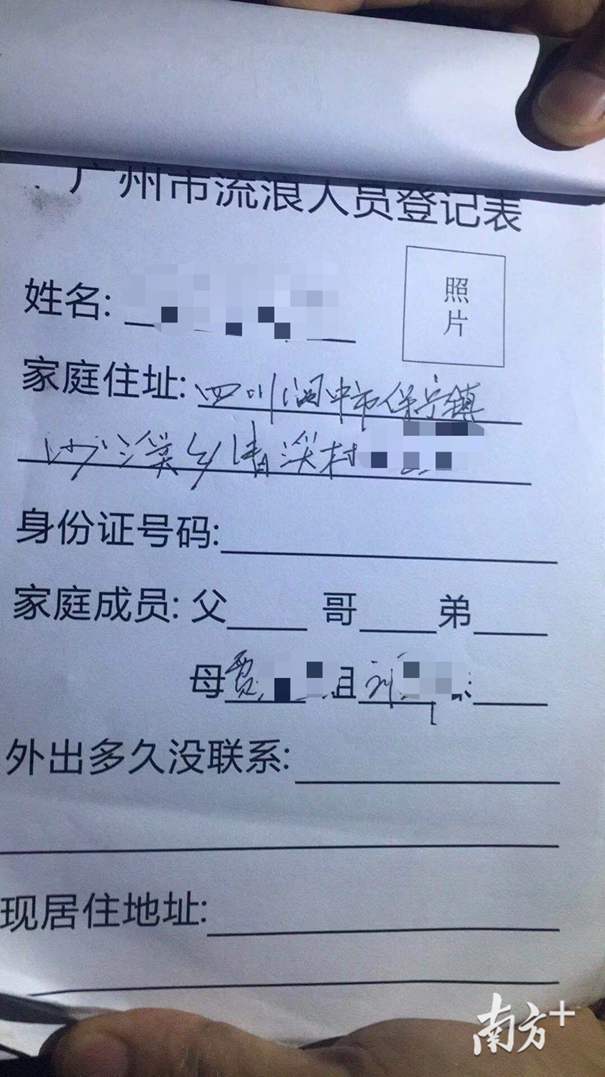 广州市流浪人员登记表
姓名:
照
片
家庭住址: 四川阆中市保宁镇
沙溪乡清溪村
身份证号码:
家庭成员: 父 哥 弟
母 贾 姐 刘
外出多久没联系:
现居住地址:
南方+